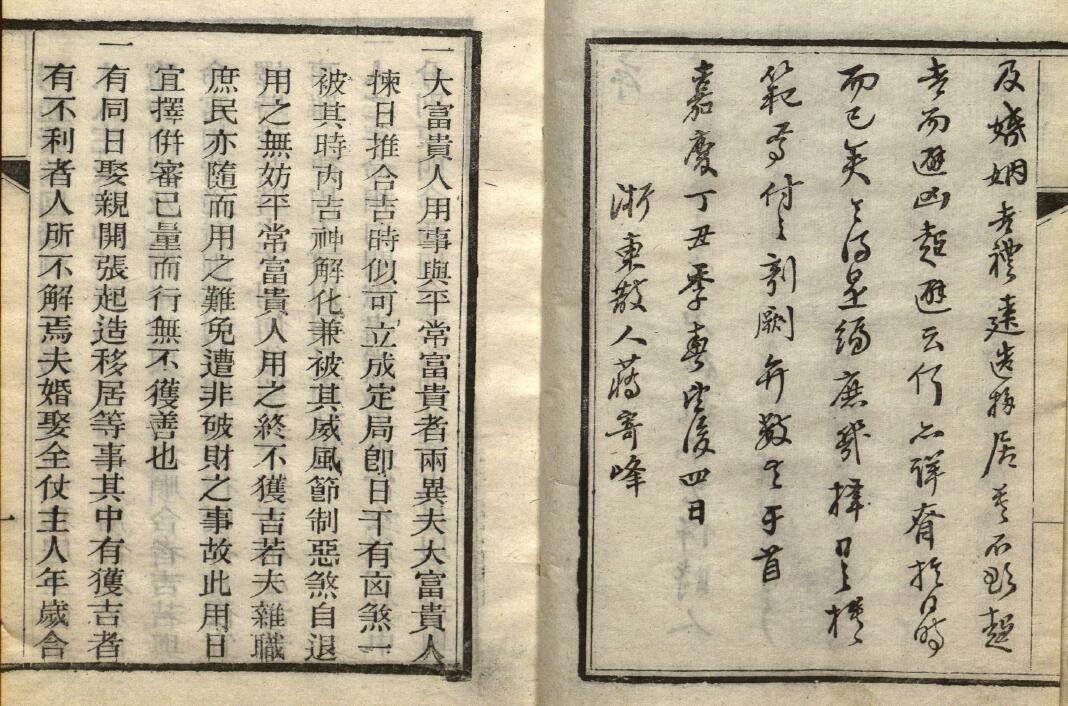 及婚姻吉禮建造移居莫不欲趨
吉而避凶趨避云何亦詳脊於日時
而已矣是編庶幾擇日之模
範爲付之剞劂弁數言于首
嘉慶丁丑季春望後四日
浙東散人蔣寄峰
一大富貴人用事與平常富貴者兩異夫大富貴人
揀日推合吉時似可立成定局卽日干有凶煞一
被其時內吉神解化兼被其威風節制惡煞自退
用之無妨平常富貴人用之終不獲吉若夫雜職
庶民亦隨而用之難免遭非破財之事故此用日
宜擇併審已量而行無不獲善也
一有同日娶親開張起造移居等事其中有獲吉者
有不利者人所不解焉夫婚娶全仗主人年歲合
一